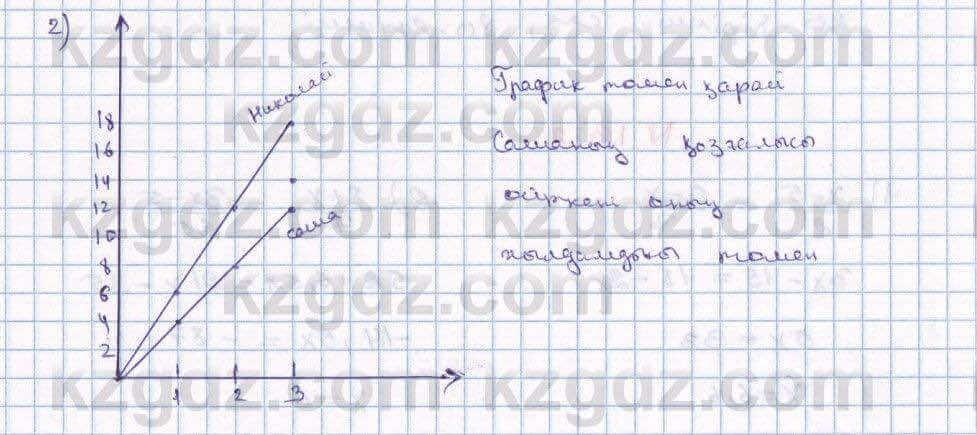 2)
kzgdz.com kzgdz.com
Николай
18
16
14
12
10
8
6
4
2
Саша
1 2 3
График томен қарай
Сашаның қозғалысы
өйткені оның
жылдамдығы томен
kzgdz.com kzgdz.com
kzgdz.com kzgdz.com
kzgdz.com kzgdz.com
kzgdz.com kzgdz.com